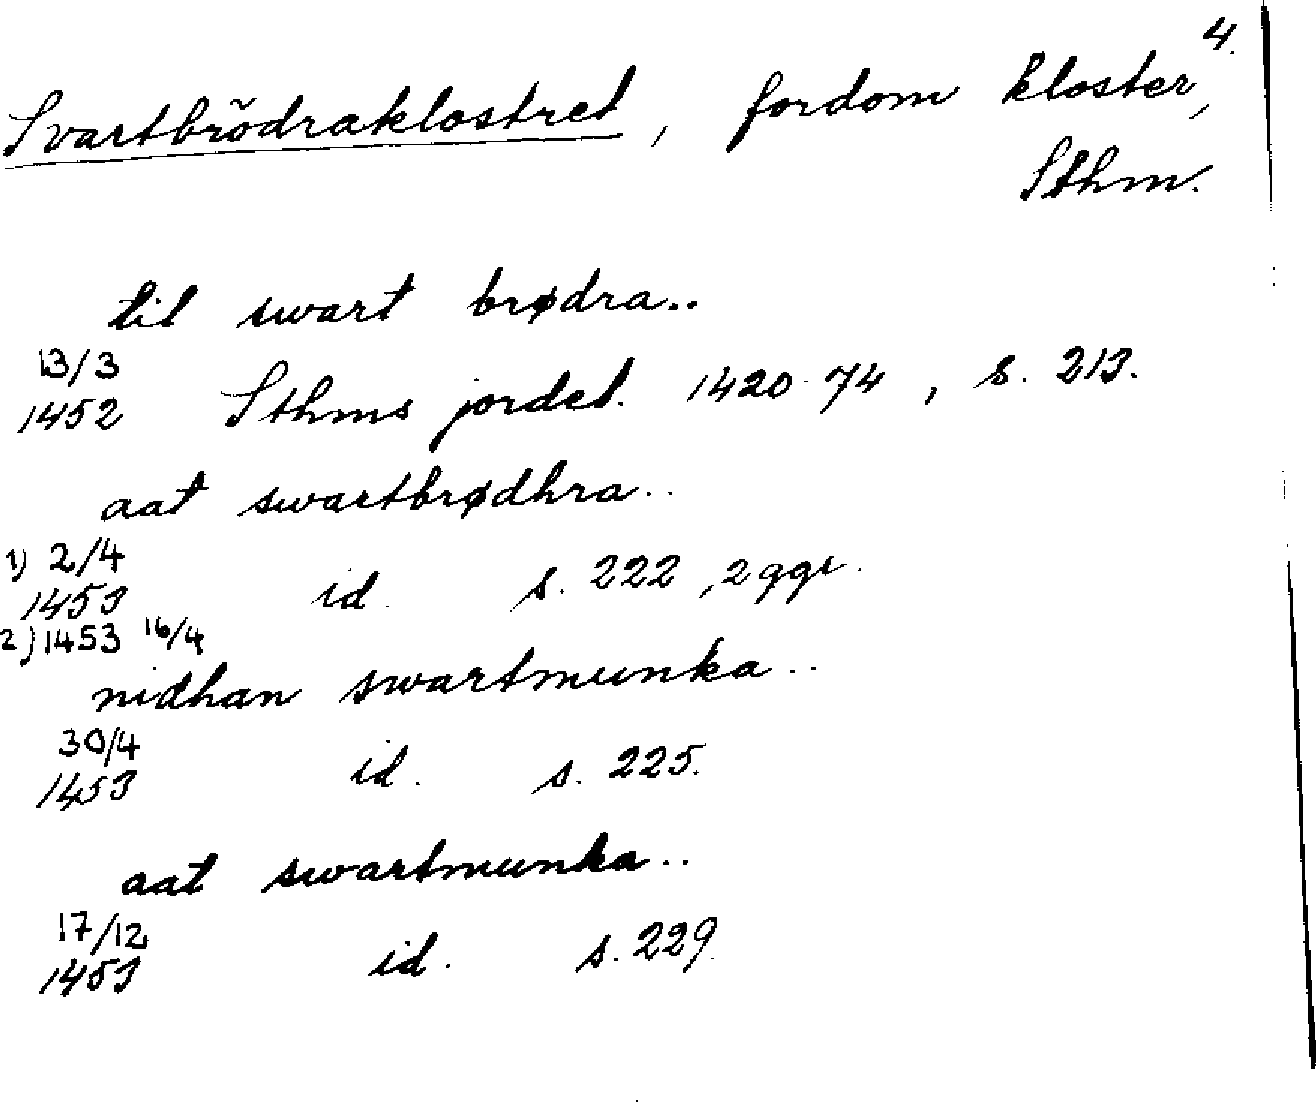 4.
Svartbrödraklostret, fordom kloster,
Sthm.
til swart brødra..
13/3
1452 Sthms jordeb. 1420-74, s. 213.
aat swartbrødhra..
1) 2/4
1453 id. s. 222, 2 ggr.
2) 1453 16/4
nidhan swartmunka..
30/4
1453 id. s. 225.
aat swartmunka..
17/12
1453 id. s. 229.